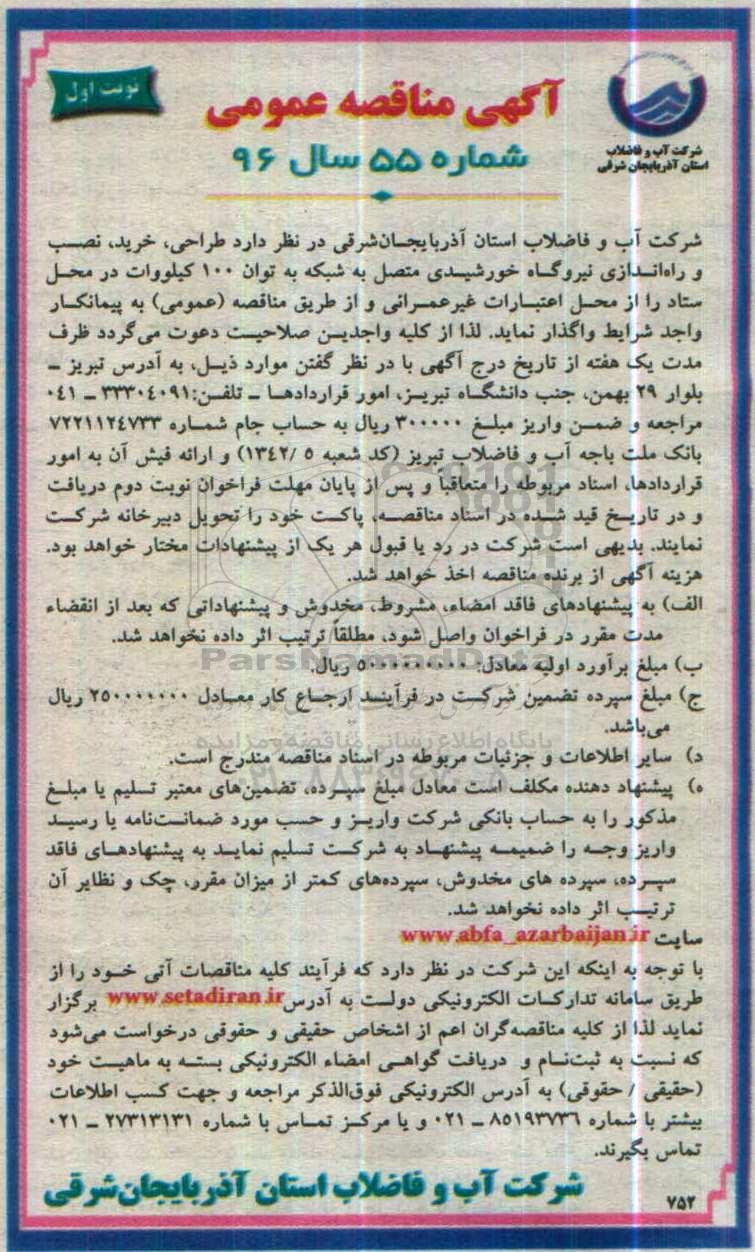 نوبت اول
آگهی مناقصه عمومی
شماره ۵۵ سال ۹۶
شرکت آب و فاضلاب
استان آذربایجان شرقی
شرکت آب و فاضلاب استان آذربایجان‌شرقی در نظر دارد طراحی، خرید، نصب
و راه‌اندازی نیروگاه خورشیدی متصل به شبکه به توان ۱۰۰ کیلووات در محل
ستاد را از محل اعتبارات غیرعمرانی و از طریق مناقصه (عمومی) به پیمانکار
واجد شرایط واگذار نماید. لذا از کلیه واجدین صلاحیت دعوت می‌گردد ظرف
مدت یک هفته از تاریخ درج آگهی با در نظر گفتن موارد ذیل، به آدرس تبریز ـ
بلوار ۲۹ بهمن، جنب دانشگاه تبریز، امور قراردادها ـ تلفن: ۳۳۳۰۴۰۹۱ ـ ۰۴۱
مراجعه و ضمن واریز مبلغ ۳۰۰۰۰۰ ریال به حساب جام شماره ۷۲۲۱۱۲۴۷۳۳
بانک ملت باجه آب و فاضلاب تبریز (کد شعبه ۵ /۱۳۴۲) و ارائه فیش آن به امور
قراردادها، اسناد مربوطه را متعاقباً و پس از پایان مهلت فراخوان نوبت دوم دریافت
و در تاریخ قید شده در اسناد مناقصه، پاکت خود را تحویل دبیرخانه شرکت
نمایند. بدیهی است شرکت در رد یا قبول هر یک از پیشنهادات مختار خواهد بود.
هزینه آگهی از برنده مناقصه اخذ خواهد شد.
الف) به پیشنهادهای فاقد امضاء، مشروط، مخدوش و پیشنهاداتی که بعد از انقضاء
مدت مقرر در فراخوان واصل شود، مطلقاً ترتیب اثر داده نخواهد شد.
ب) مبلغ برآورد اولیه معادل: ۵۰۰۰۰۰۰۰۰۰ ریال.
ج) مبلغ سپرده تضمین شرکت در فرآیند ارجاع کار معادل ۲۵۰۰۰۰۰۰۰ ریال
می‌باشد.
د) سایر اطلاعات و جزئیات مربوطه در اسناد مناقصه مندرج است.
ه) پیشنهاد دهنده مکلف است معادل مبلغ سپرده، تضمین‌های معتبر تسلیم یا مبلغ
مذکور را به حساب بانکی شرکت واریز و حسب مورد ضمانت‌نامه یا رسید
واریز وجه را ضمیمه پیشنهاد به شرکت تسلیم نماید به پیشنهادهای فاقد
سپرده، سپرده های مخدوش، سپرده‌های کمتر از میزان مقرر، چک و نظایر آن
ترتیب اثر داده نخواهد شد.
سایت www.abfa_azarbaijan.ir
با توجه به اینکه این شرکت در نظر دارد که فرآیند کلیه مناقصات آتی خود را از
طریق سامانه تدارکات الکترونیکی دولت به آدرس www.setadiran.ir برگزار
نماید لذا از کلیه مناقصه‌گران اعم از اشخاص حقیقی و حقوقی درخواست می‌شود
که نسبت به ثبت‌نام و دریافت گواهی امضاء الکترونیکی بسته به ماهیت خود
(حقیقی / حقوقی) به آدرس الکترونیکی فوق‌الذکر مراجعه و جهت کسب اطلاعات
بیشتر با شماره ۸۵۱۹۳۷۳۶ ـ ۰۲۱ و یا مرکز تماس با شماره ۲۷۳۱۳۱۳۱ ـ ۰۲۱
تماس بگیرند.
شرکت آب و فاضلاب استان آذربایجان‌شرقی
۷۵۲
ParsNamadData
پایگاه اطلاع رسانی مناقصه و مزایده